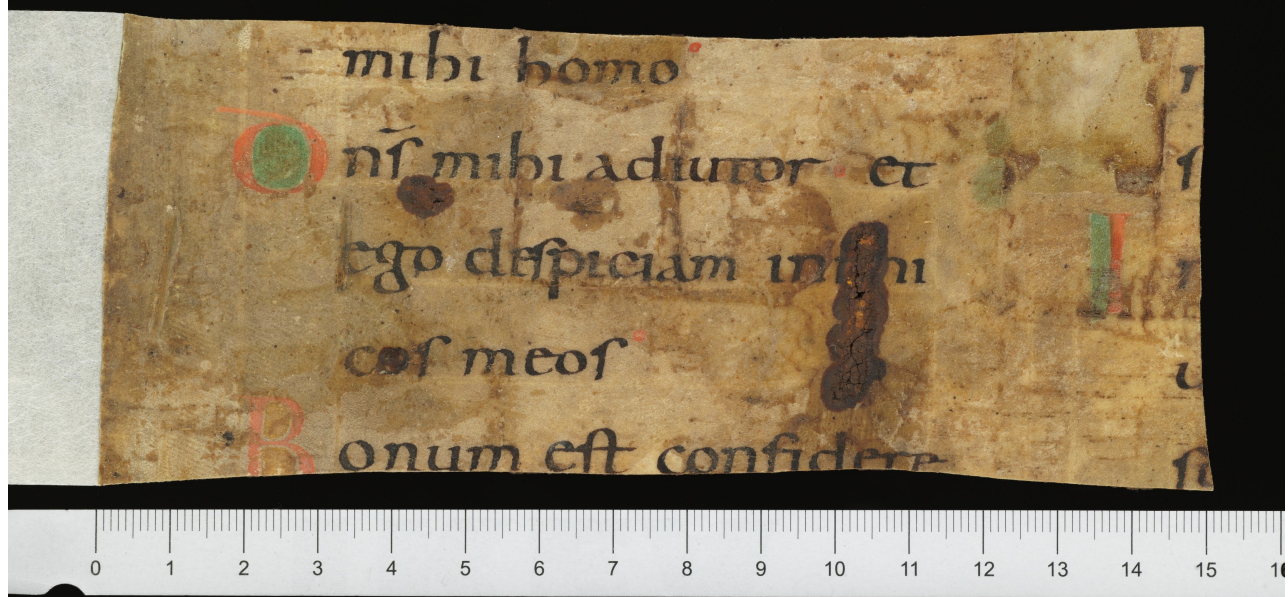 mihi homo
Dns̄ mihi adiutor et
ego despiciam inimi
cos meos
Bonum est confidere
0 1 2 3 4 5 6 7 8 9 10 11 12 13 14 15